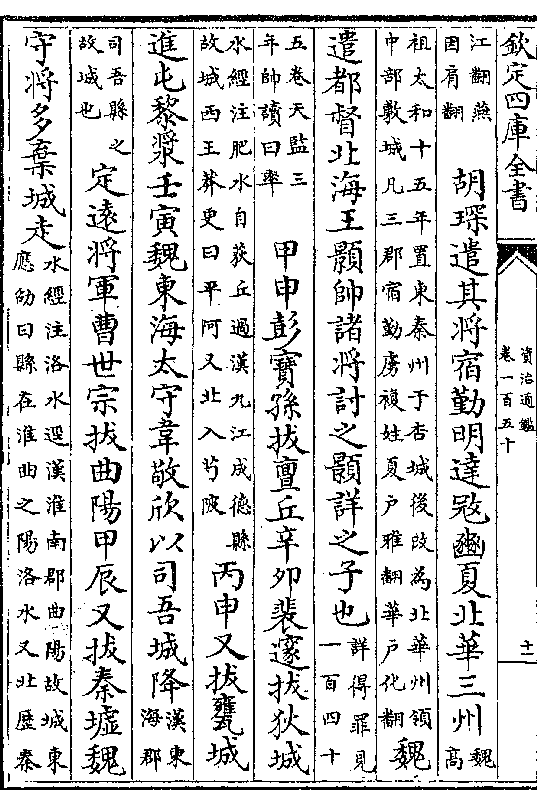 欽定四庫全書
資治通鑑
卷一百五十
十一
江翻燕
困肩翻
胡琛遣其將宿勤明達冦豳夏北華三州
魏
高
祖太和十五年置東秦州于杏城後改為北華州領
中部敷城凡三郡宿勤虜複姓夏戶雅翻華戶化翻
魏
遣都督北海王顥帥諸將討之顥詳之子也
詳得罪見
一百四十
五卷天監三
年帥讀曰率
甲申彭寶孫拔亶丘辛卯裴邃拔狄城
水經注肥水自荻丘過漢九江成德縣
故城西王莽更曰平阿又北入芍陂
丙申又拔甓城
進屯黎漿壬寅魏東海太守韋敬欣以司吾城降
漢東
海郡
司吾縣之
故城也
定遠將軍曹世宗拔曲陽甲辰又拔秦墟魏
守將多棄城走
水經注洛水逕漢淮南郡曲陽故城東
應劭曰縣在淮曲之陽洛水又北歷秦